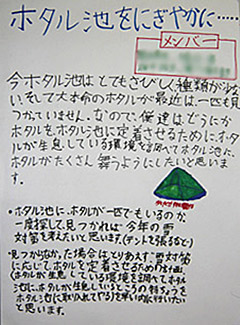 ホタル池をにぎやかに……
メンバー
今ホタル池はとてもさびしく種類が少な
い。そして大本命のホタルが最近は一匹も見
つかっていません。なので、俺達はどうにか
ホタルをホタル池に定着させるためにホタ
ルが生息している環境を調べてホタル池に
ホタルがたくさん舞うようにしたいと思いま
す。
・ホタル池に、ホタルが一匹でもいるのか
一度探して、見つかれば今年の雪
対策を考えたいと思います。(テントで張るなど)
見つからなかった場合はとりあえず、雪対策
に応じてホタルを定着させるための計画、
ホタルが生息している環境を調べてホタル
池に、ホタルが生息しているところの特ちょうを
ホタル池に取り入れて
いたいと
思います。